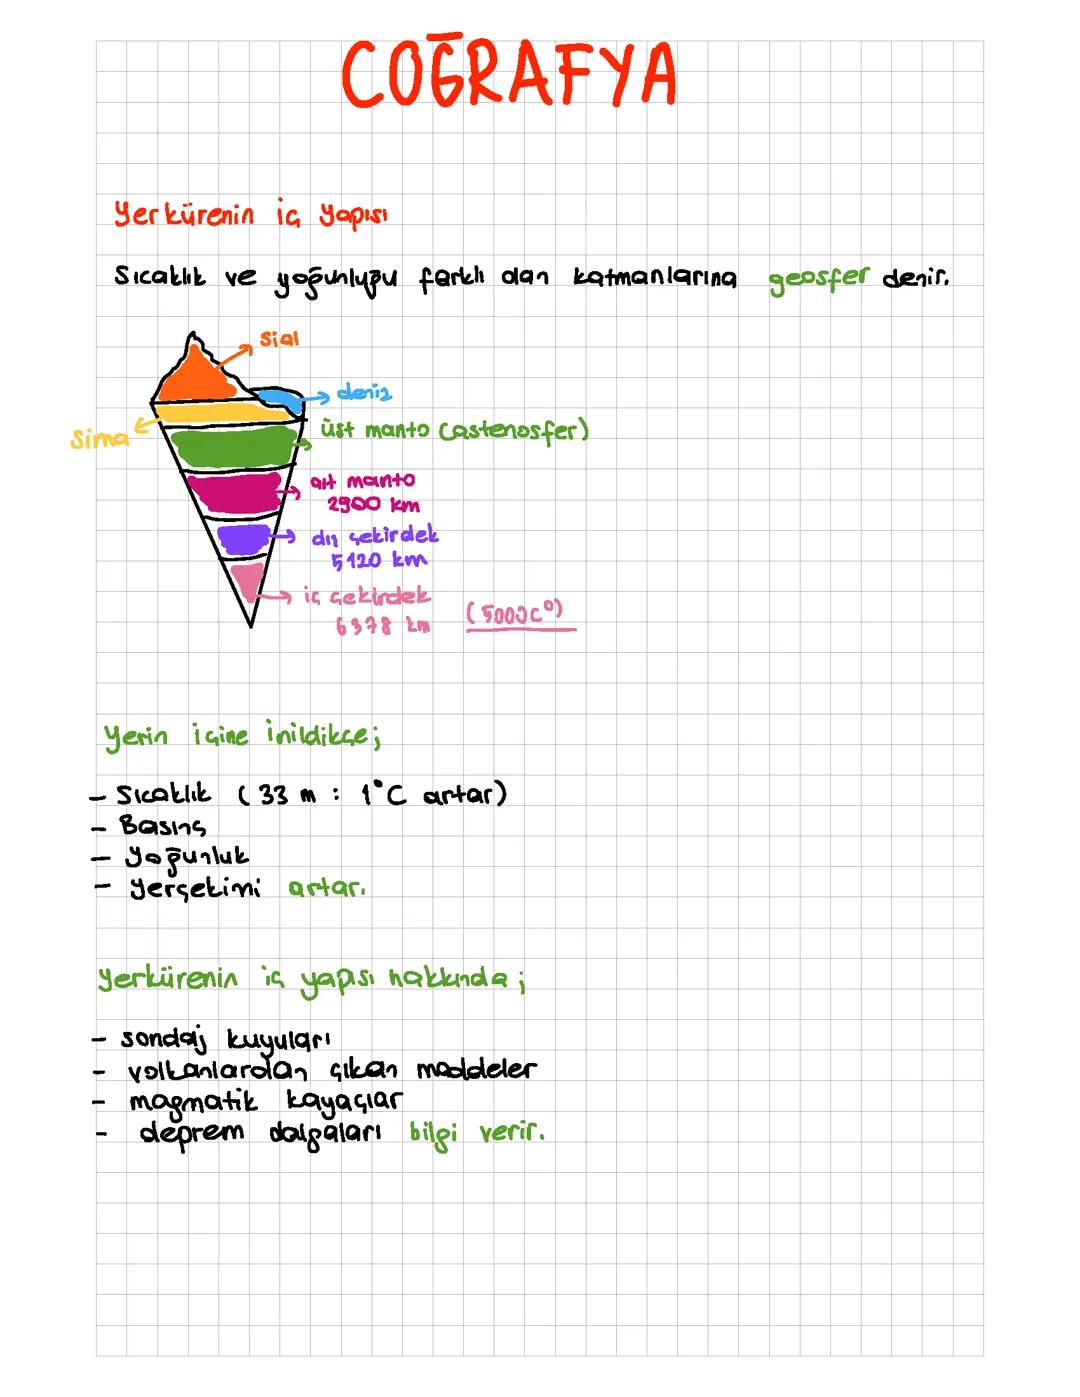 COĞRAFYA
Yerkürenin iç yapısı
Sıcaklık ve yoğunluğu farklı olan katmanlarına geosfer denir.
sial
deniz
Sima
üst manto (astenosfer)
alt manto
2900 km
dış çekirdek
5120 km
iç çekirdek
6378 km (5000C°)
Yerin içine inildikçe;
- Sıcaklık (33 m : 1°C artar)
- Basınç
- Yoğunluk
- Yerçekimi artar.
Yerkürenin iç yapısı hakkında;
- sondaj kuyuları
- volkanlardan çıkan maddeler
- magmatik kayaçlar
- deprem dalgaları bilgi verir.